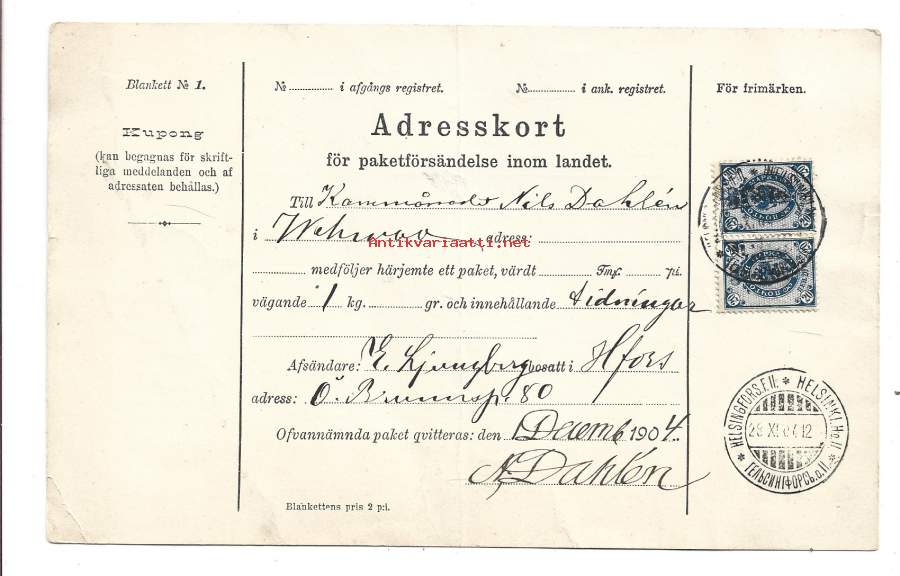 Blankett № 1.
Kupong
(kan begagnas för skrift-
liga meddelanden och af
adressaten behållas.)
№ i afgångs registret. № i ank. registret.
Adresskort
för paketförsändelse inom landet.
Till Nils Dahlén
i adress:
Antikvariaatti.net
medföljer härjemte ett paket, värdt Fmp. pi.
vägande 1 kg. gr. och innehållande tidningar
Afsändare: E. Ljungberg bosatt i Hfors
adress: Ö. Brunnsp. 80
Ofvannämnda paket qvitteras: den 1 Decemb 1904.
N Dahlén
Blankettens pris 2 p:i.
För frimärken.
HELSINGFORS.F.II. * HELSINKI.Ho.II *
ГЕЛЬСИНГФОРСЪ.о.II. *